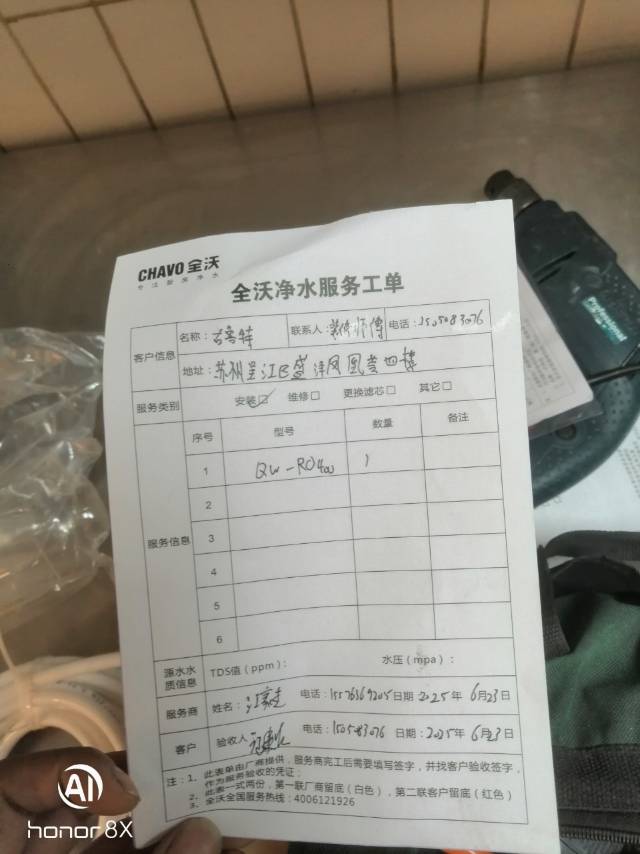 CHAVO 全沃
专注厨房净水
全沃净水服务工单
客户信息 名称: 古鲁特 联系人: 师傅 电话:
地址: 苏州吴江区盛泽凤凰 四楼
服务类别 安装☑ 维修□ 更换滤芯□ 其它□
服务信息 序号 型号 数量 备注
1 QW-RO400 1
2
3
4
5
6
源水水质信息 TDS值(ppm): 水压(mpa):
服务商 姓名: 电话: 15576369205 日期: 2025年 6月23日
客户 验收人 电话: 150583076 日期: 2025年 6月23日
注:1、此表单由厂商提供,服务商完工后需要填写签字,并找客户验收签字,
作为服务验收的凭证;
2、此表一式两份,第一联厂商留底(白色),第二联客户留底(红色)
3、全沃全国服务热线:4006121926
Professional
AI
honor 8X